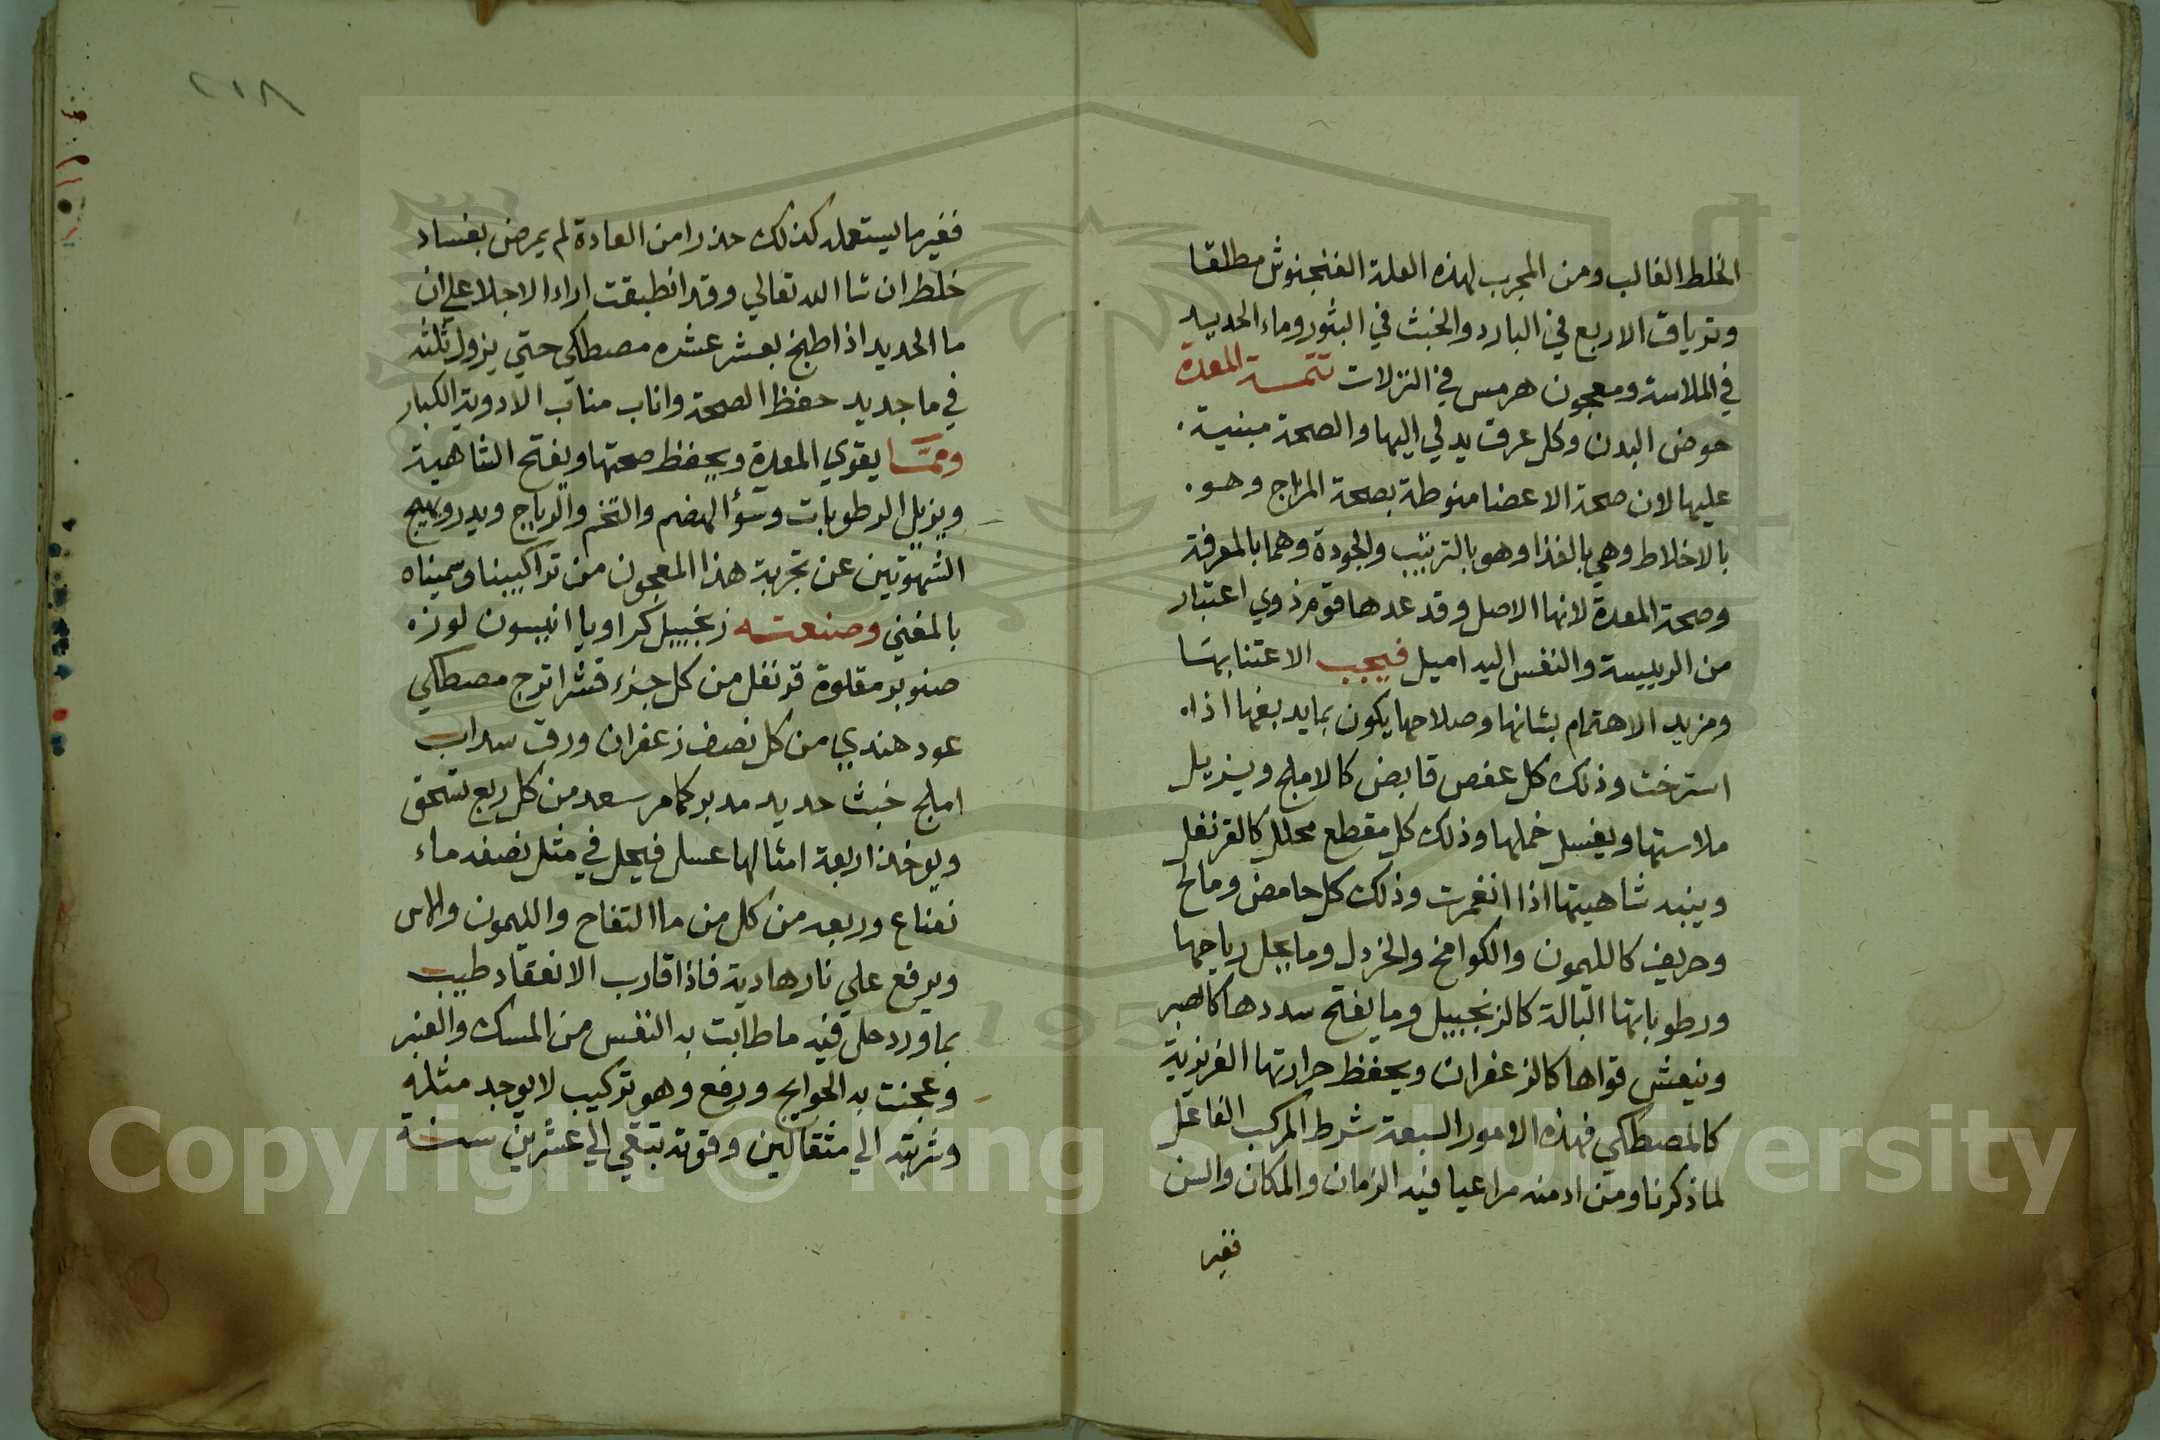 الخلط الغالب ومن المجرب لهذه العلة الفنجنوش مطلقا
وترياق الاربع في البارد والخبث في البثور وماء الحديد
في الملاسة ومعجون هرمس في النزلات تتمسة المعدة
حوض البدن وكل عرق يدلي اليها والصحة مبنية
عليها لان صحة الاعضا منوطة بصحة المزاج وهو
بالاخلاط وهي بالغذا وهو بالترتيب والجودة وهما بالمعرفة
وصحة المعدة لانها الاصل وقد عدها قوم ذوي اعتبار
من الرييسة والنفس اليه اميل فيجب الاعتنا بها
ومزيد الاهتمام بشانها وصلاحها يكون بما يدبغها اذا
استرخت وذلك كل عفص قابض كالاملج ويزيل
ملاستها ويغسل خملها وذلك كل مقطع محلل كالقرنفل
وينبه شاهيتها اذا انغمرت وذلك كل حامض ومالح
وحريف كالليمون والكوامخ والخردل وما يحل رياحها
ورطوباتها البالة كالزنجبيل وما يفتح سددها كالصبر
وينعش قواها كالزعفران ويحفظ حرارتها الغريزية
كالمصطكي فهذه الامور السبعة شرط المركب الفاعل
لما ذكرنا ومن ادمنه مراعيا فيه الزمان والمكان والسن
فغير
٢١٨
فغير ما يستعمله كذلك حذرا من العادة لم يمرض بفساد
خلط ان شا الله تعالي وقد انطبقت اراء الاجلا علي ان
ما الحديد اذا طبخ بعشر عشره مصطكي حتي يزول ثلثه
في ما جديد حفظ الصحة واناب مناب الادوية الكبار
ومما يقوي المعدة ويحفظ صحتها ويفتح الشاهية
ويزيل الرطوبات وسوٓ الهضم والتخم والرياح ويدر ويهيج
الشهوتين عن تجربة هذا المعجون من تراكيبنا وسميناه
بالمغني وصنعته زنجبيل كراويا انيسون لوزه
صنوبر مقلوة قرنفل من كل جزء قشر اترج مصطكي
عود هندي من كل نصف زعفران ورق سداب
املج خبث حديد مدبر كما مر سعد من كل ربع تسحق
ويوخذ اربعة امثالها عسل فيحل في مثل نصفه ماء
نعناع وربعه من كل من ما التفاح والليمون والاس
ويرفع علي نار هادية فاذا قارب الانعقاد طيب
بماورد حل فيه ما طابت به النفس من المسك والعنبر
وعجنت به الحوايج ورفع وهو تركيب لا يوجد مثله
وشربته الي مثقالين وقوته تبقي الي عشرين سنة
Copyright © King Saud University
195